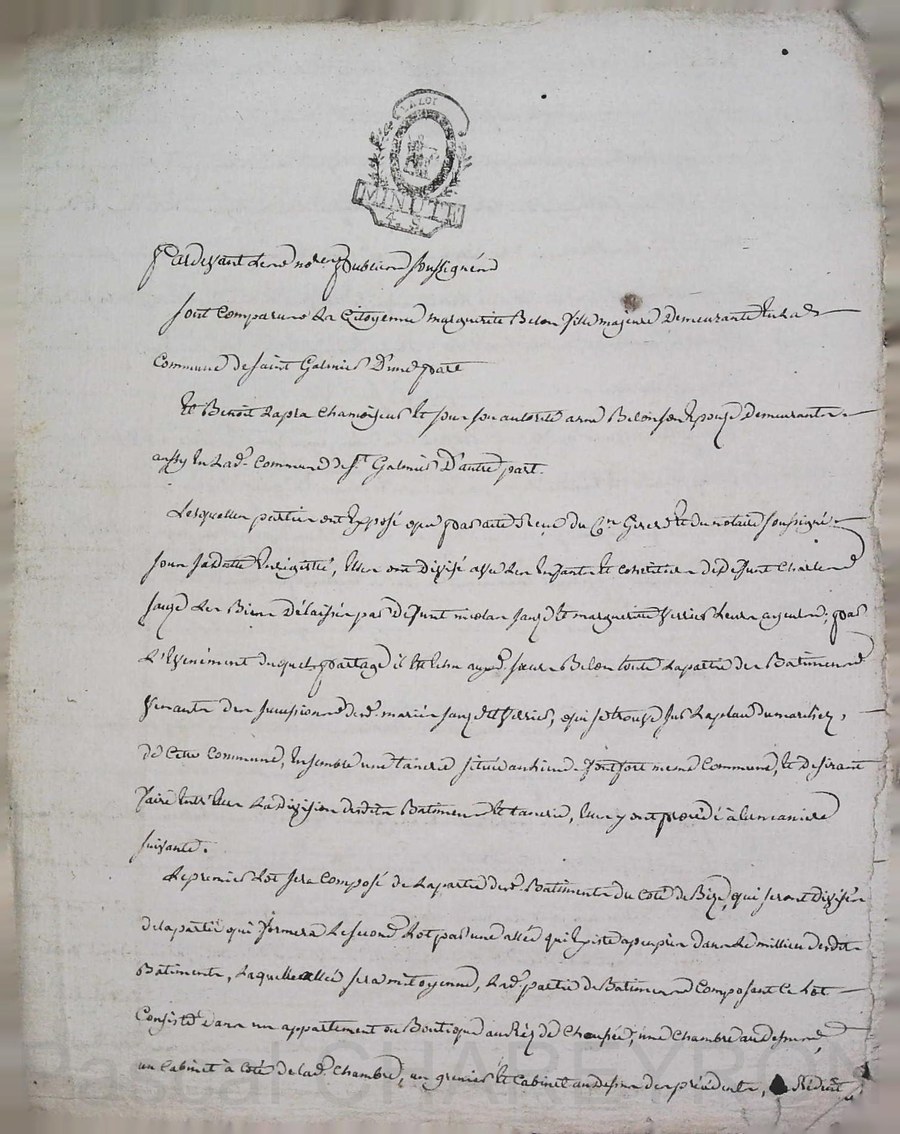 LA LOI
MINUTE
4. S.
Pardevant les nores publics soussignés
sont comparus La Citoyenne marguerite Belon fille majeure Demeurante En La d.
Commune de saint Galmier D'une part
Et Benoit Lapra Chamoiseur Et sous son autorité anne Belon son Epouse demeurante
aussy En Lad. Commune de St. Galmier D'autre part.
Lesquelles parties ont Exposé que par acte Reçu du Cen Girerd Et du notaire soussigné
sous sa datte Enregistré, Elles ont divisé avec Les Enfants Et deffunt Charles
Sauze Les Biens Délaissés par deffunt nicolas Sauze Et marguerite Verrier Leurs ayeuls, par
L'Evenément duquel partage il Est Echu auxd. soeurs Belon toute La partie des Batiments
Venants des successions desd. mariés Sauze Et Verrier, qui se trouve sur La place du marché,
de Cette Commune, Ensemble une tanerie située au Lieu de fontfort meme Commune, Et desirant
faire Entr'Elles La division desdits Batiments Et tanerie, Elles y ont procédé à La maniere
suivante.
Le premier Lot sera Composé de La partie desd. Batiments du Coté de Bize, qui seront divisés
de la partie qui formera Le second Lot par une allée qui Existe a peu près dans Le millieu desdits
Batiments, Laquelle allée sera mitoyenne, Lad. partie de Batiments Composant Ce Lot
Consiste dans un appartement ou Boutique au Réz de Chaussée, une Chambre au dessus,
un Cabinet à Coté de lad. Chambre, un grenier Et Cabinet au dessus des précédents, Réduit
Pascal CHAREYRON